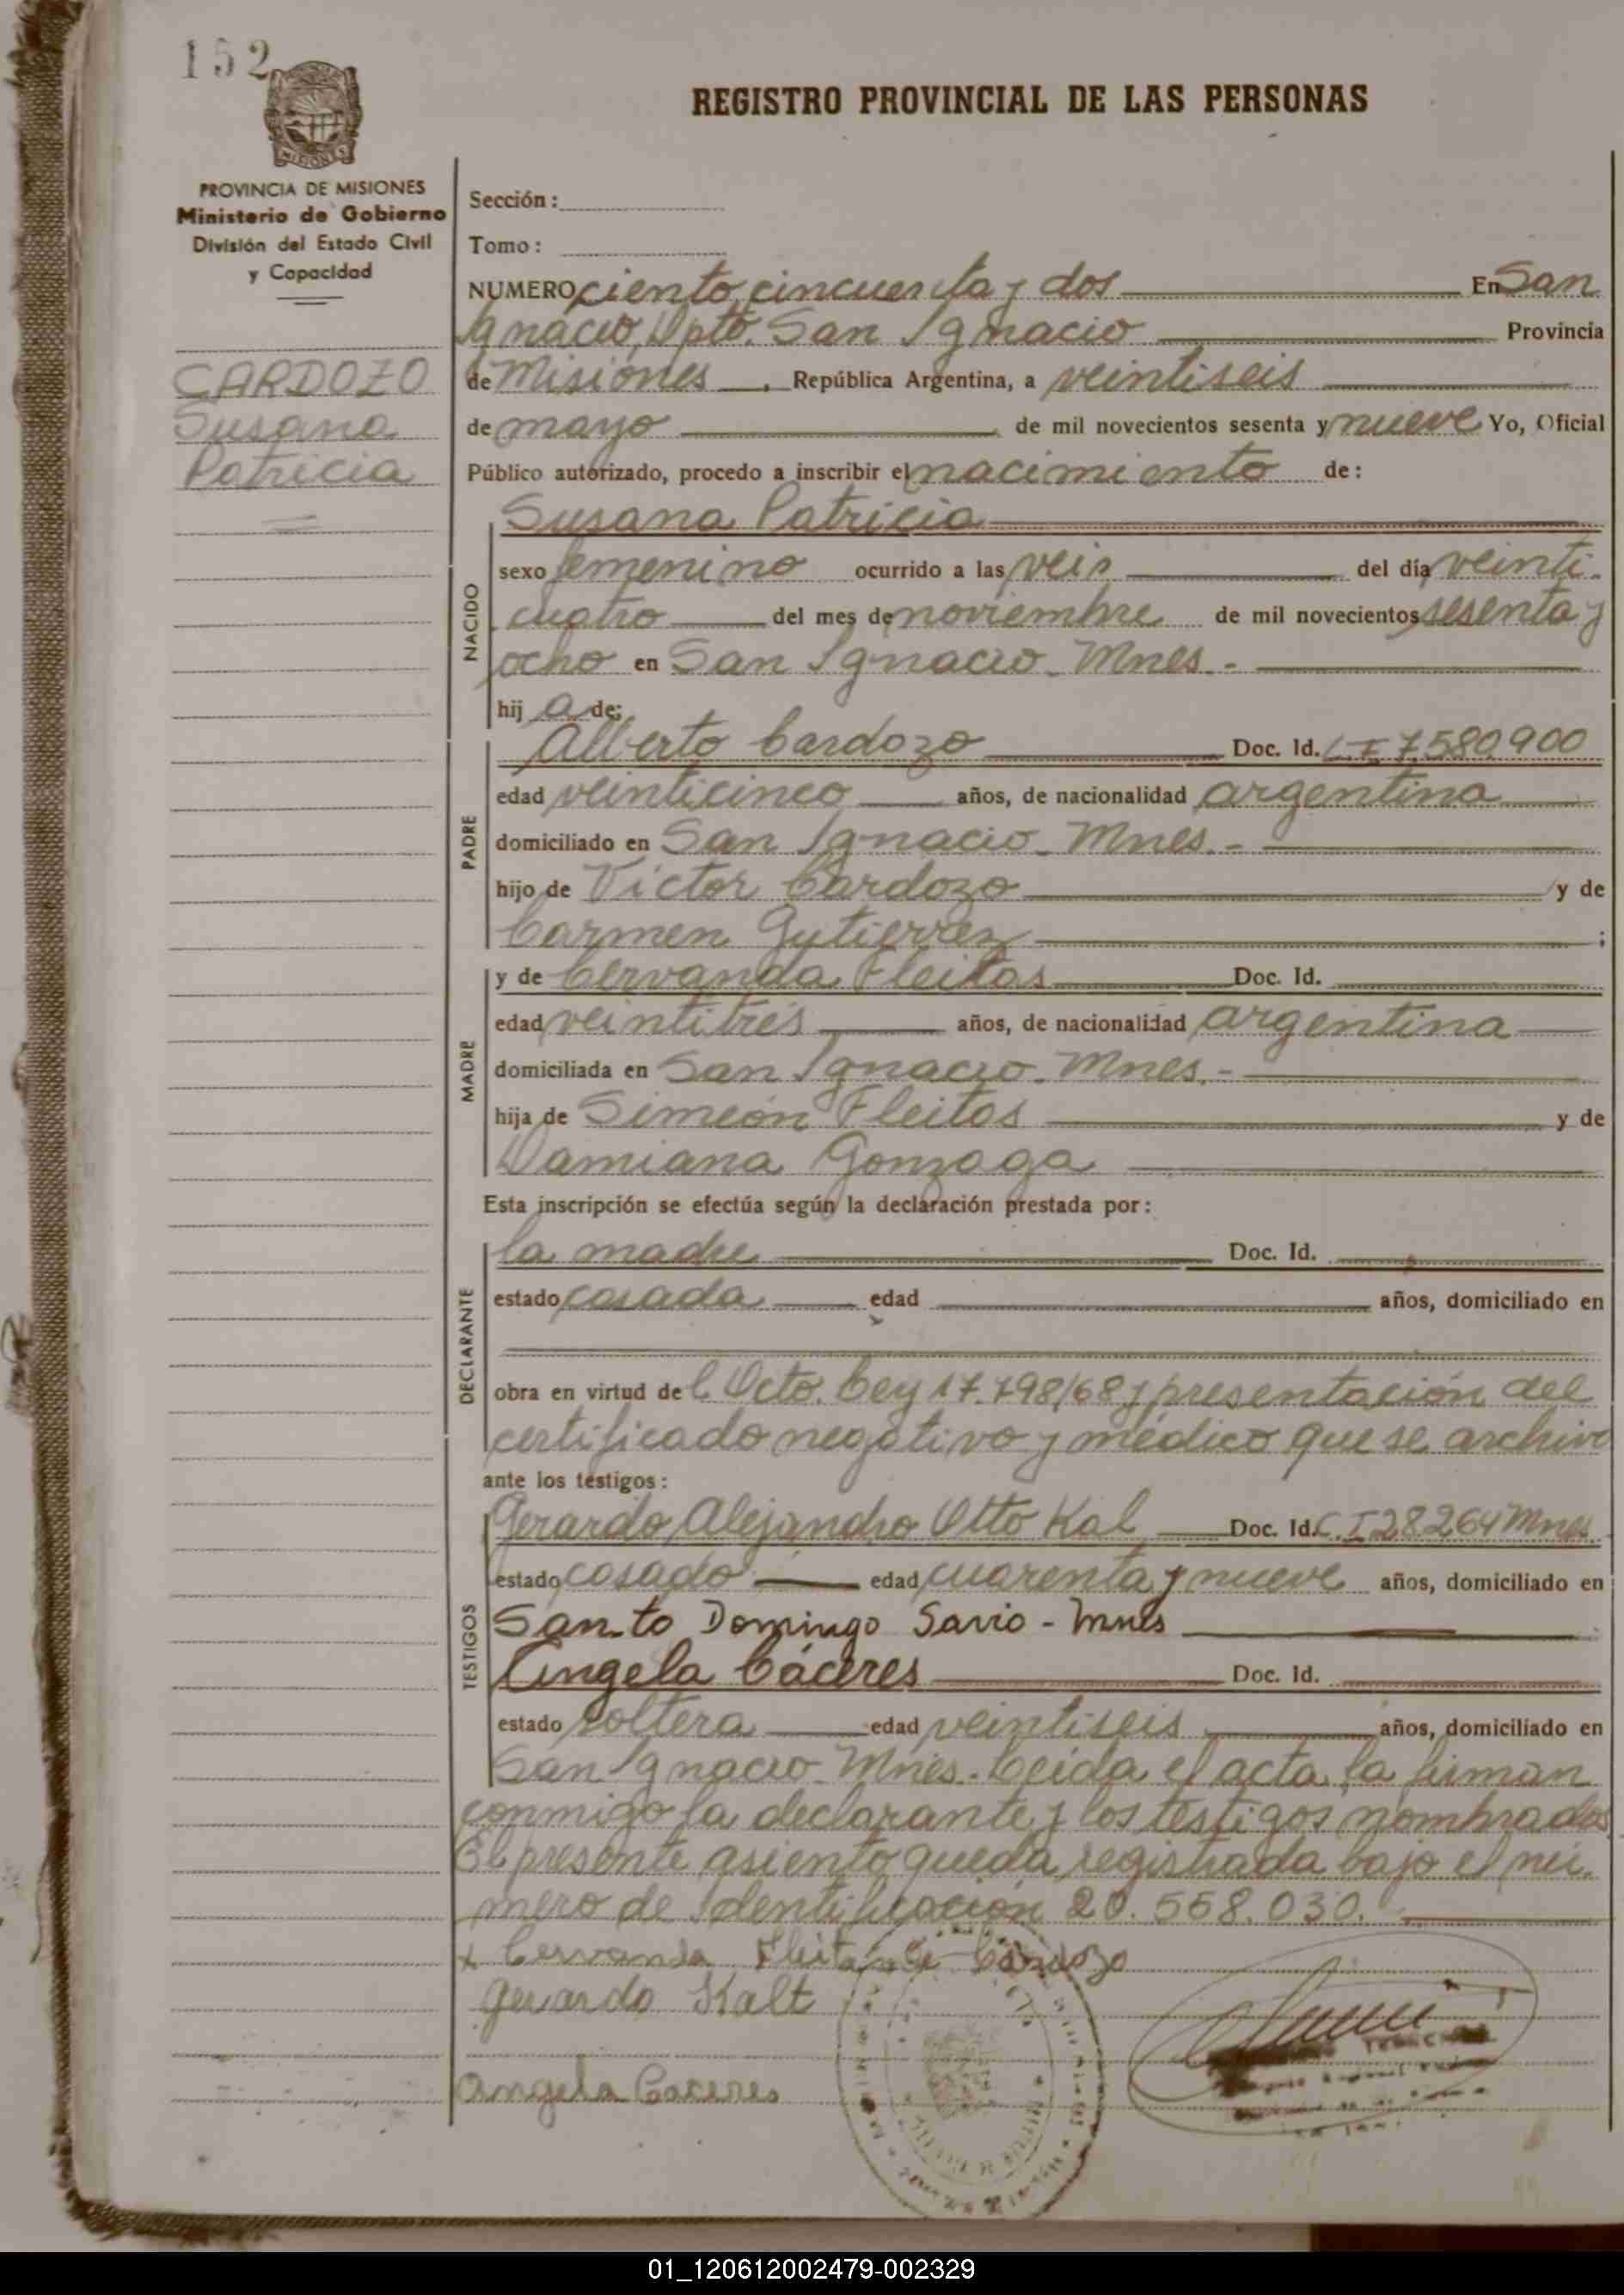 152
MISIONES
REGISTRO PROVINCIAL DE LAS PERSONAS
PROVINCIA DE MISIONES
Ministerio de Gobierno
División del Estado Civil
y Capacidad
CARDOZO
Susana
Patricia
Sección:
Tomo:
NUMERO ciento cincuenta y dos En San
Ignacio, Dpto. San Ignacio Provincia
de Misiones, República Argentina, a veintiseis
de mayo de mil novecientos sesenta y nueve Yo, Oficial
Público autorizado, procedo a inscribir el nacimiento de:
NACIDO
Susana Patricia
sexo femenino ocurrido a las seis del día veinti-
cuatro del mes de noviembre de mil novecientos sesenta y
ocho en San Ignacio - Mnes.-
hij a de:
PADRE
Alberto Cardozo Doc. Id. 7.580.900
edad veinticinco años, de nacionalidad argentina
domiciliado en San Ignacio - Mnes.-
hijo de Victor Cardozo y de
Carmen Gutierrez ;
MADRE
y de Cervanda Fleitas Doc. Id.
edad veintitrés años, de nacionalidad argentina
domiciliada en San Ignacio - Mnes.-
hija de Simeón Fleitas y de
Damiana Gonzaga
Esta inscripción se efectúa según la declaración prestada por:
DECLARANTE
la madre Doc. Id.
estado casada edad años, domiciliado en
obra en virtud del Dcto. Ley 17.798/68 y presentación del
certificado negativo y médico que se archiva
ante los testigos:
TESTIGOS
Gerardo Alejandro Otto Kal Doc. Id. C.I 28264 Mnes.
estado casado edad cuarenta y nueve años, domiciliado en
Santo Domingo Savio - Mnes
Angela Cáceres Doc. Id.
estado soltera edad veintiseis años, domiciliado en
San Ignacio - Mnes. Leida el acta, la firman
conmigo la declarante y los testigos nombrados
El presente asiento queda registrada bajo el nú-
mero de Identificación 20.568.030.
x Cervanda Fleita de Cardozo
Gerardo Kalt
Angela Caceres
01_120612002479-002329